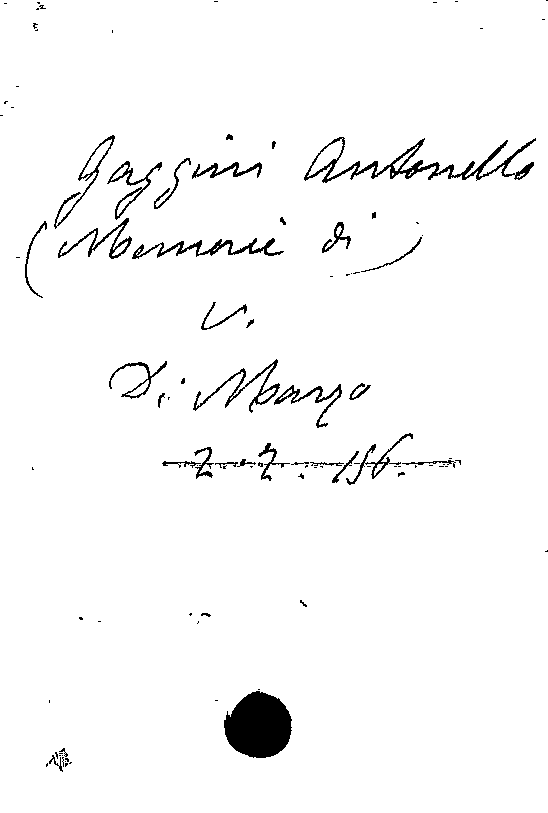 Gaggini Antonello
(Memorie di)
V.
Di Marzo
2.2.156.